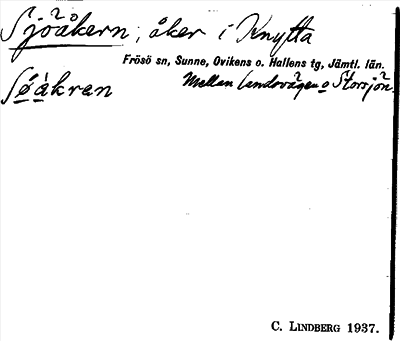 Sjöåkern, åker i Knytta
Frösö sn, Sunne, Ovikens o. Hallens tg, Jämtl. län.
Söåkran Mellan landsvägen o Storsjön.
C. LINDBERG 1937.